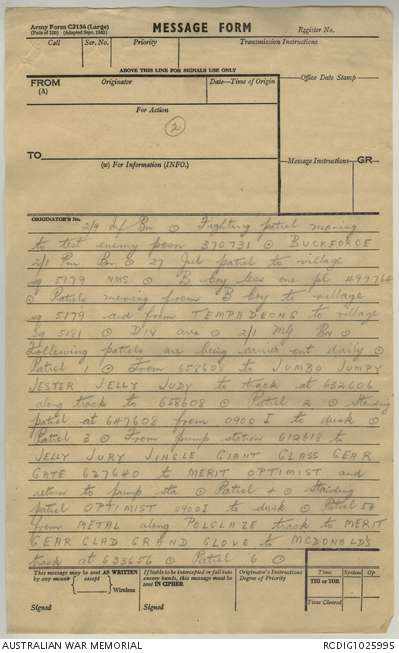 Army Form C2136 (Large)
(Pads of 100) (Adopted Sept. 1943)
MESSAGE FORM
Register No.
Call
Ser. No.
Priority
Transmission Instructions
ABOVE THIS LINE FOR SIGNALS USE ONLY
FROM
(A)
Originator
Date—Time of Origin
Office Date Stamp
For Action
2
TO
(w) For Information (INFO.)
Message Instructions
GR
ORIGINATOR'S No.
2/9 Inf Bn ⊙ Fighting patrol moving
to test enemy posn 370731 ⊙ BUCKFORCE
2/1 Pnr Bn ⊙ 27 Jul patrol to village
sq 5179 NMS ⊙ B coy less one pl 499764
⊙ Patrols moving from B coy to village
sq 5179 and from TEMPADEONG to village
sq 5181 ⊙ DIV area ⊙ 2/1 MG Bn ⊙
Following patrols are being carried out daily ⊙
Patrol 1 ⊙ From 658608 to JUMBO JUMPY
JESTER JELLY JUDY to track at 632606
along track to 658608 ⊙ Patrol 2 ⊙ Standing
patrol at 647608 from 0900 I to dusk ⊙
Patrol 3 ⊙ From pump station 612618 to
JELLY JURY JINGLE GIANT GLASS GEAR
GATE 627640 to MERIT OPTIMIST and
return to pump sta ⊙ Patrol 4 ⊙ Standing
patrol OPTIMIST 0900I to dusk ⊙ Patrol 5
from METAL along POLGLAZE track to MERIT
GEAR GLAD GRAND GLOVE to MCDONALD'S
track at 633656 ⊙ Patrol 6 ⊙
This message may be sent AS WRITTEN
by any means except Wireless
Signed
If liable to be intercepted or fall into
enemy hands, this message must be
sent IN CIPHER.
Signed
Originator's Instructions
Degree of Priority
Time
System
Op
THI or TOR
Time Cleared
AUSTRALIAN WAR MEMORIAL
RCDIG1025995